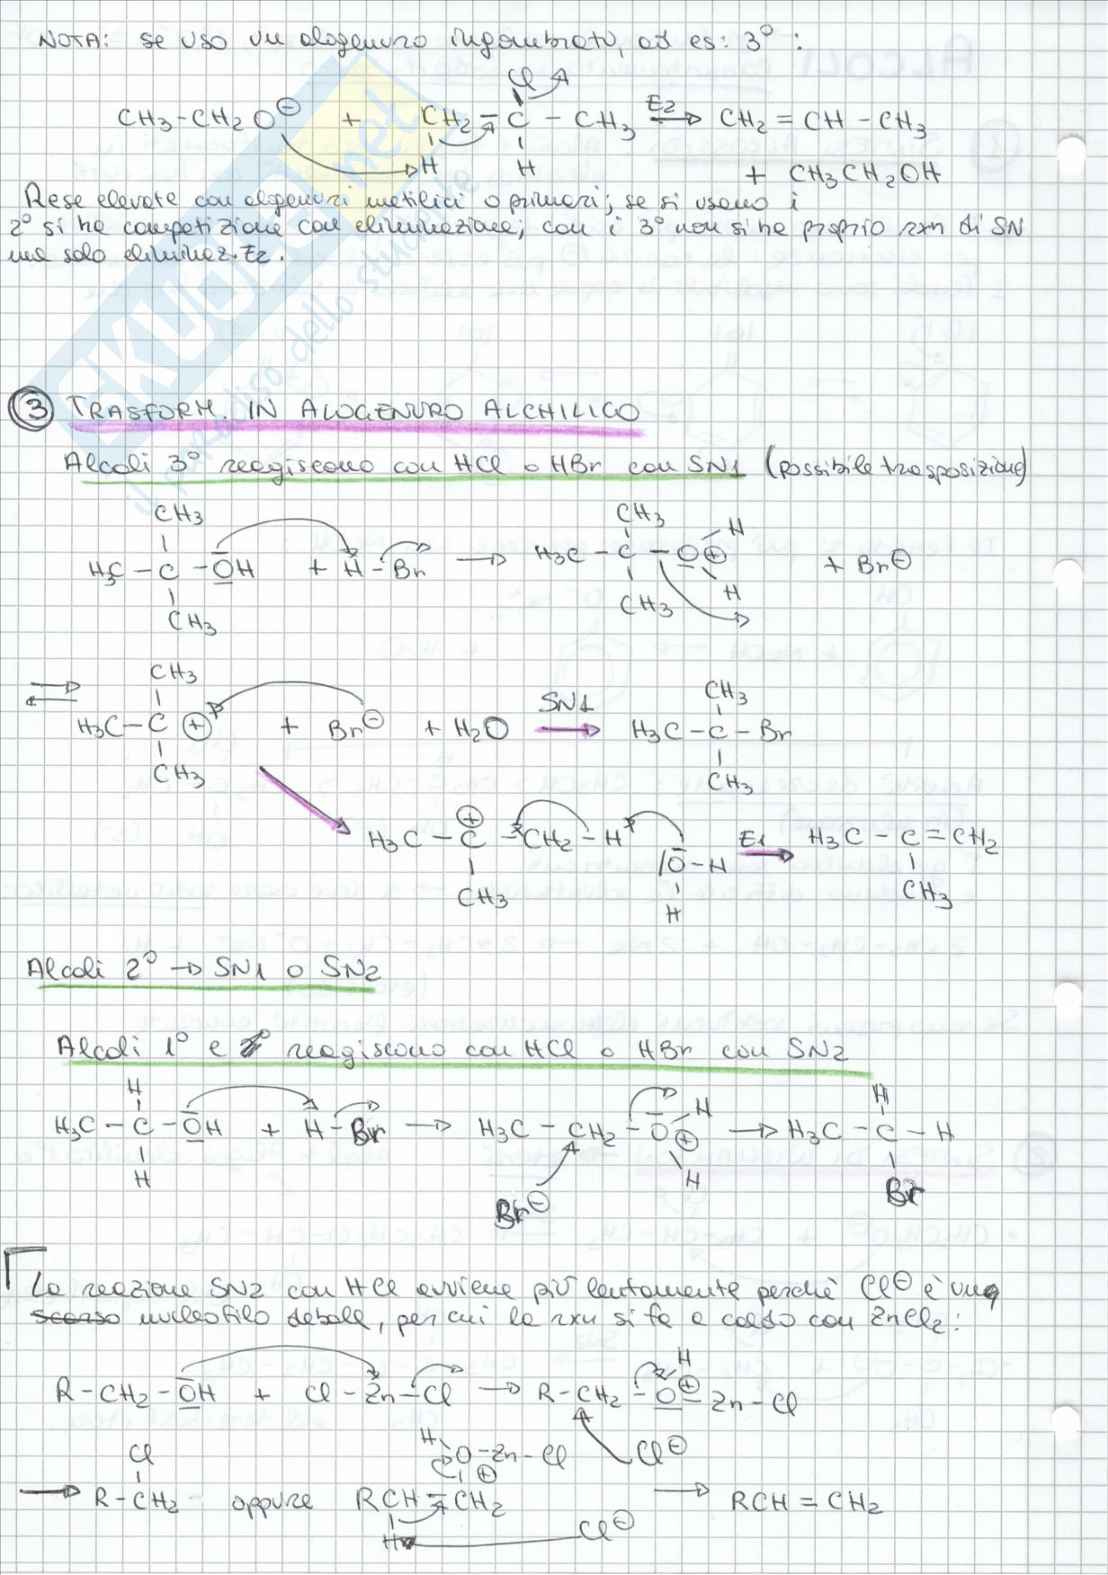 NOTA: se uso un alogenuro ingombrato, ad es: 3° :
Cl
CH3-CH2O⊖ + CH2 - C - CH3 E2 ⇌ CH2 = CH - CH3
H H + CH3CH2OH
Rese elevate con alogenuri metilici o primari; se si usano i
2° si ha competizione con eliminazione; con i 3° non si ha proprio rxn di SN
ma solo eliminaz. E2.
SKUOLA.net
il paradiso dello studente
3 TRASFORM. IN ALOGENURO ALCHILICO
Alcoli 3° reagiscono con HCl o HBr con SN1 (possibile trasposizione)
CH3 CH3 H
H3C - C - OH + H - Br → H3C - C - O⊕ + Br⊖
CH3 CH3 H
CH3 CH3
⇌ H3C - C ⊕ + Br⊖ + H2O SN1 → H3C - C - Br
CH3 CH3
H3C - C⊕ - CH2 - H |O - H E1 → H3C - C = CH2
CH3 H CH3
Alcoli 2° → SN1 o SN2
Alcoli 1° e 2° reagiscono con HCl o HBr con SN2
H H H
H3C - C - OH + H - Br → H3C - CH2 - O⊕ → H3C - C - H
H Br⊖ H Br
La reazione SN2 con HCl avviene più lentamente perché Cl⊖ è un
scarso nucleofilo debole, per cui la rxn si fa a caldo con ZnCl2:
H
R - CH2 - OH + Cl - Zn - Cl → R - CH2 - O⊕ - Zn - Cl
Cl H O - Zn - Cl Cl⊖
⊕
→ R - CH2 oppure RCH - CH2 → RCH = CH2
H Cl⊖